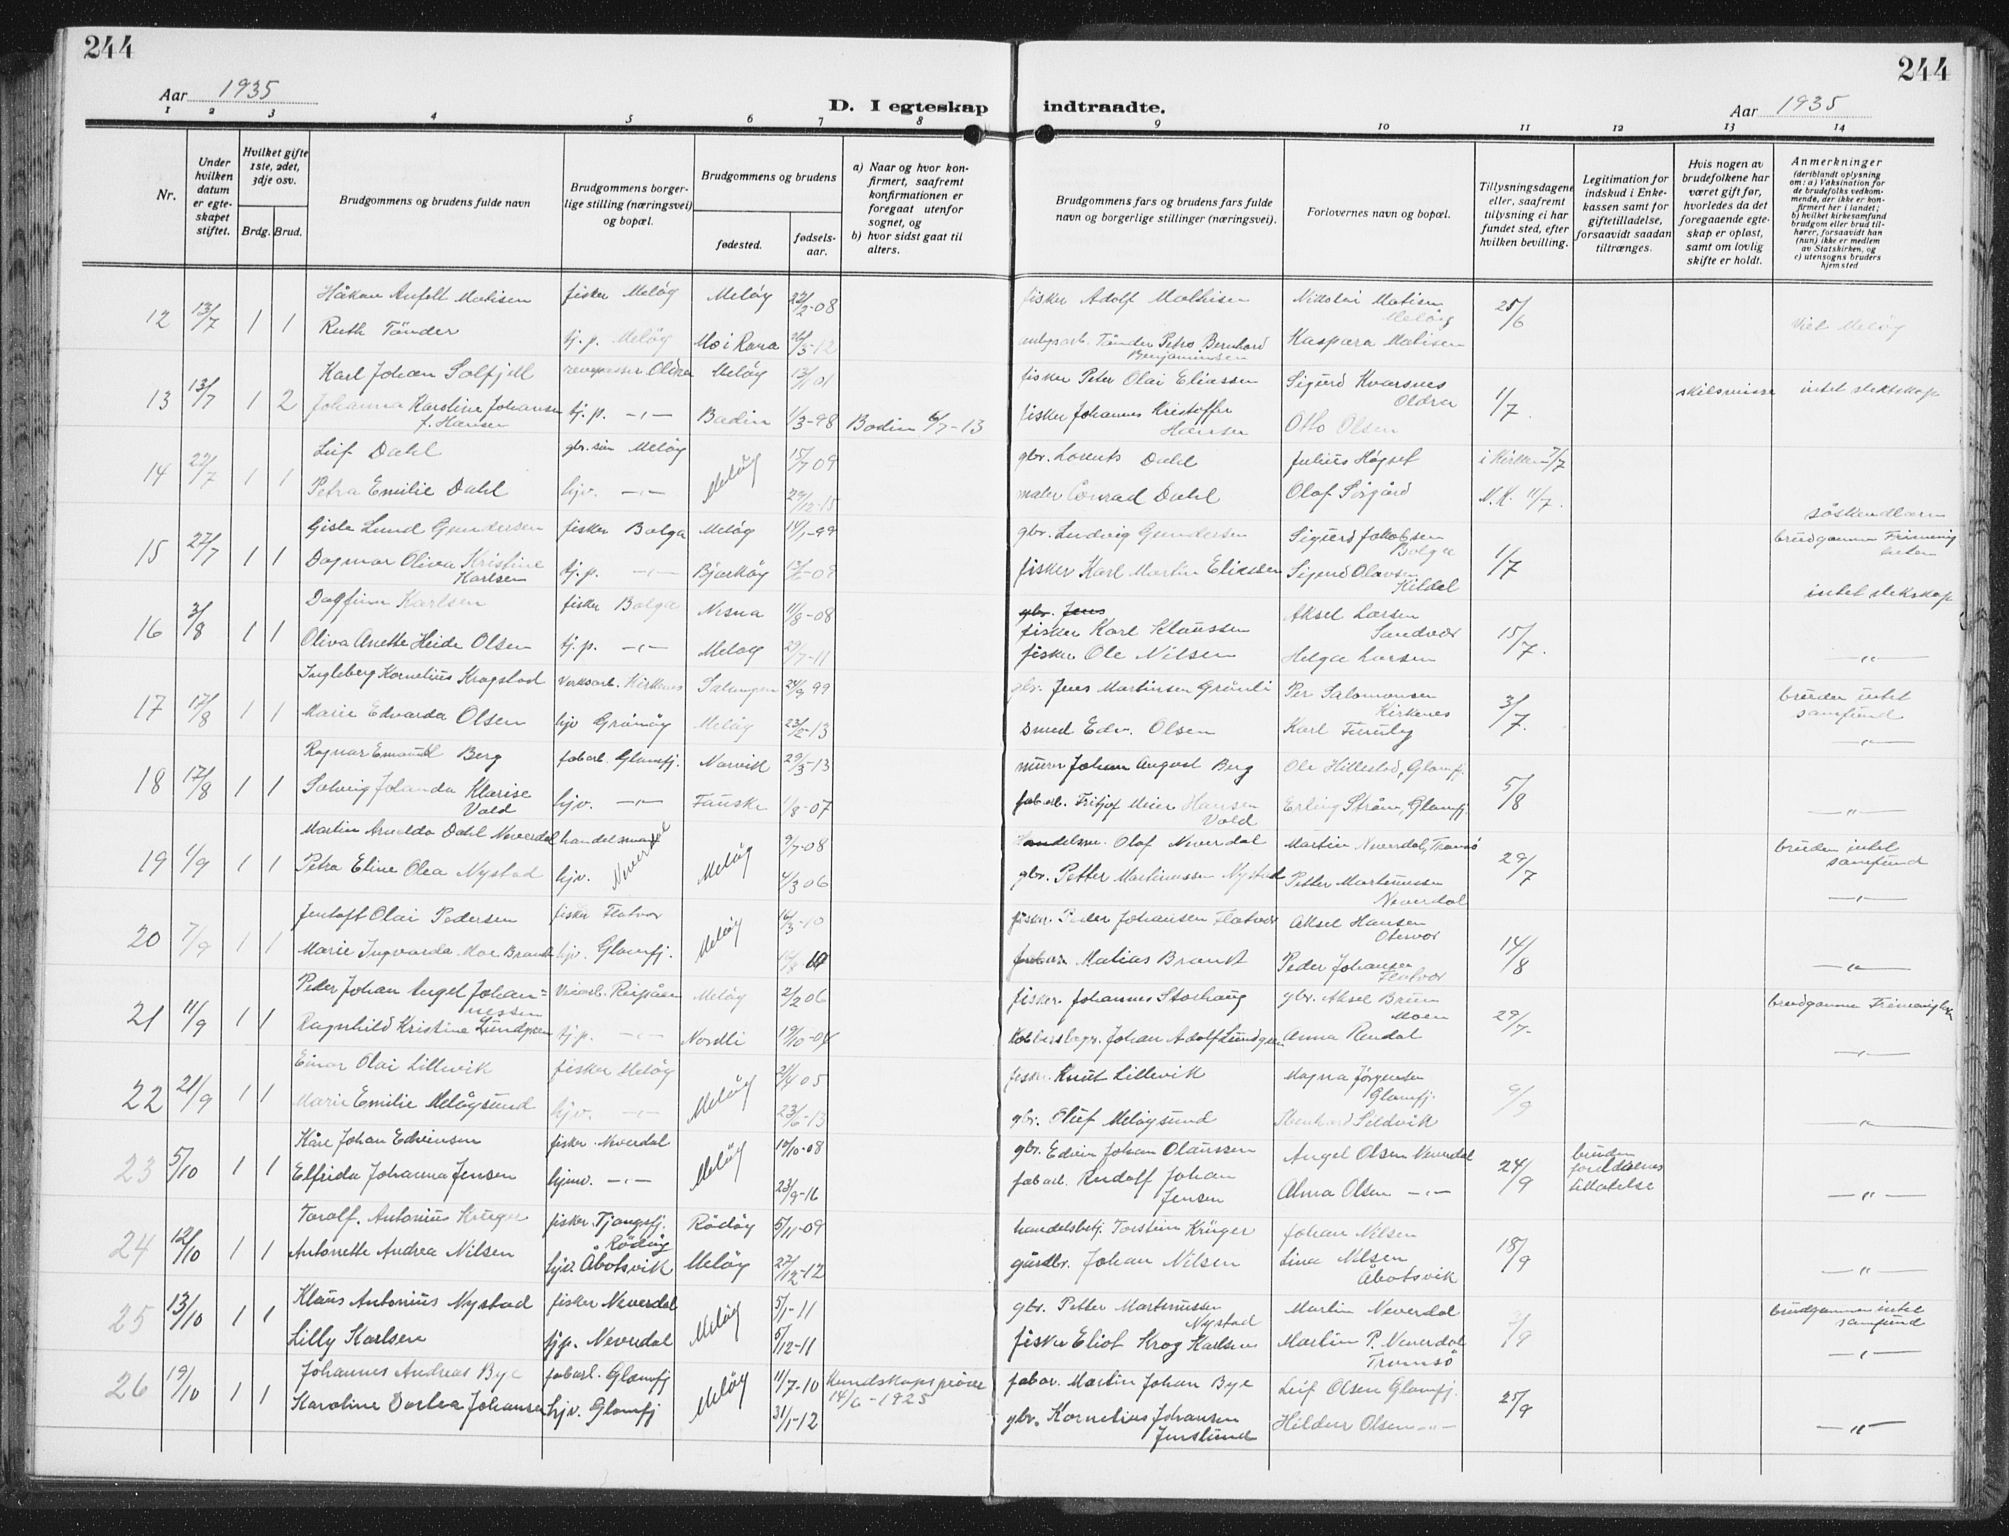 244
244
Aar 1935
D. I egteskap indtraadte.
Aar 1935
1 2 3 4 5 6 7 8 9 10 11 12 13 14
Nr.
Under hvilken datum er egteskapet stiftet.
Hvilket gifte 1ste, 2det, 3dje osv.
Brdg. Brud.
Brudgommens og brudens fulde navn
Brudgommens borgerlige stilling (næringsvei) og bopæl.
Brudgommens og brudens
fødested.
fødselsaar.
a) Naar og hvor konfirmert, saafremt konfirmationen er foregaat utenfor sognet, og
b) hvor sidst gaat til alters.
Brudgommens fars og brudens fars fulde navn og borgerlige stillinger (næringsvei).
Forlovernes navn og bopæl.
Tillysningsdagene eller, saafremt tillysning ei har fundet sted, efter hvilken bevilling.
Legitimation for indskud i Enkekassen samt for giftetilladelse, forsaavidt saadan tiltrænges.
Hvis nogen av brudefolkene har været gift før, hvorledes da det foregaaende egteskap er opløst, samt om lovlig skifte er holdt.
Anmerkninger (deriblandt oplysning om: a) Vaksination for de brudefolks vedkommende, der ikke er konfirmert her i landet; b) hvilket kirkesamfund brudgom eller brud tilhører, forsaavidt han (hun) ikke er medlem av Statskirken, og c) utensogns bruders hjemsted
12 13/7 1 1 Håkon Anfelt Matisen fisker Meløy Meløy 22/2-08 fisker Adolf Mathisen Nikolai Matisen Meløy 25/6
Ruth Tånder tj.p. Meløy Mo i Rana 26/3-12 Tånder Petro Bernhard Benjaminsen Kaspara Matisen Viet Meløy
13 13/7 1 2 Karl Johan Solfjell Oldra Meløy 13/1 01 fisker Peter Olai Eliassen Sigurd Kvarsnes Oldra 1/7. skilsmisse intet slektskap
Johanna Karoline Johansen f. Hansen tj.p. -"- Bodin 1/3-98 Bodin 6/7-13 fisker Johannes Kristoffer Hansen Otto Olsen
14 27/7 1 1 Leif Dahl gbr. søn Meløy Meløy 15/7 09 gbr. Lorents Dahl Julius Høgset i Kirken 7/7
Petra Emilie Dahl hjv. -"- 29/12-15 maler Conrad Dahl Olaf Sørgård N.K. 11/7. søskendbarn
15 27/7 1 1 Gisle Lund Gundersen fisker Bolga Meløy 14/1-99 gbr. Ludvig Gundersen Sigurd Jakobsen Bolga 1/7 brudgommen Frimenigheten
Dagmar Oliva Kristine Karlsen tj.p. -"- Bjarkøy fisker Karl Martin Eliassen Sigurd Olavsen Hildal intet slekskap
16 3/8 1 1 Dagfinn Karlsen fisker Bolga Nesna 11/8-08 gbr. Jens fisker Karl Klaussen Aksel Larsen Sandvær 15/7.
Oliva Anette Heide Olsen tj.p. -"- Meløy 29/7-11 fisker Ole Nilsen Helga Larsen -"-
17 17/8 1 1 Ingleberg Kornelius Krogstad Verksarb. Kirkenes Salangen 24/9 99 gbr. Jens Martinsen Grønli Per Salomonsen Kirkenes 3/7. bruden intet samfund
Marie Edvarda Olsen hjv Grønøy Meløy 23/2-13 smed Edv. Olsen Karl Furuly -"-
18 17/8 1 1 Ragnar Emanuel Berg fabarb. Glomfj. Narvik 29/3-13 murer Johan August Berg Ole Hillestad, Glomfj. 5/8
Solveig Jolanda Klarise Vold hjv. -"- Fauske 1/8-07 fabarb. Fritjof Meier Hansen Vold Erling Strøm, Glomfj -"-
19 1/9 1 1 Martin Arnoldo Dahl Neverdal handelsmann Neverdal Meløy 9/7-08 Handelsm. Olaf Neverdal Martin Neverdal, Tromsø 29/7 bruden intet samfund
Petra Eline Olea Nystad hjv. 4/3 06 gbr. Petter Martinussen Nystad Petter Martinussen Neverdal -"-
20 7/9 1 1 Jentoft Olai Pedersen fisker Flatvær Meløy 16/3-10 fisker. Peder Johansen Flatvær Aksel Hansen Otervær 14/8
Marie Ingvarda Moe Brandt hjv. Glomfj. Matias Brandt Peder Johansen Flatvær -"-
21 11/9 1 1 Peder Johan Angel Johannessen Meløy 2/2 06 fisker. Johannes Storhaug gbr. Aksel Bruun Moen 29/7. brudgommen Frimenigheten
Ragnhild Kristine Lundgren tj.p. -"- Nordli 19/10-04 Johan Adolf Lundgren Anna Rendal -"-
22 21/9 1 1 Einar Olai Lillevik fisker Meløy Meløy 21/4 05 fisker. Knut Lillevik Magna Jørgensen Glomfj. 9/9
Marie Emilie Meløysund hjv. -"- 23/6-13 gbr. Oluf Meløysund Seldvik "
23 5/10 1 1 Kåre Johan Edvinsen fisker. Neverdal Meløy 12/10-08 gbr. Edvin Johan Olaussen Angel Olsen Neverdal 24/9 bruden foreldrenes tillatelse
Elfrida Johanna Jensen hjmv. -"- 23/9-16 fabarb. Rudolf Johan Jensen Alma Olsen -"- -"-
24 12/10 1 1 Toralf. Antonius Krüger fisker. Tjongsfj. Rødøy Rødøy 5/11-09 handelsbetj. Torstein Krüger Johan Nilsen 18/9
Antonette Andrea Nilsen hjv. Åbotsvik Meløy 27/12-12 gårdbr. Johan Nilsen Lina Nilsen Åbotsvik -"-
25 13/10 1 1 Klaus Antonius Nystad fisker Neverdal Meløy 5/1-11 gbr. Petter Martinussen Nystad Martin Neverdal brudgommen intet samfund
Lilly Karlsen tjp. Neverdal 5/12-11 fisker Eliot Krog Karlsen Martin P. Neverdal Tromsø -"-
26 19/10 1 1 Johannes Andreas Bye fabarb. Glomfj Meløy 11/7-10 Kundskapsprøve 14/6-1925 fabar. Martin Johan Bye Leif Olsen Glomfj. 25/9
Karoline Dorlea Johansen hjv. Glomfj 31/1-12 gbr. Kornelius Johansen Jenslund Hildur Olsen -"- -"-